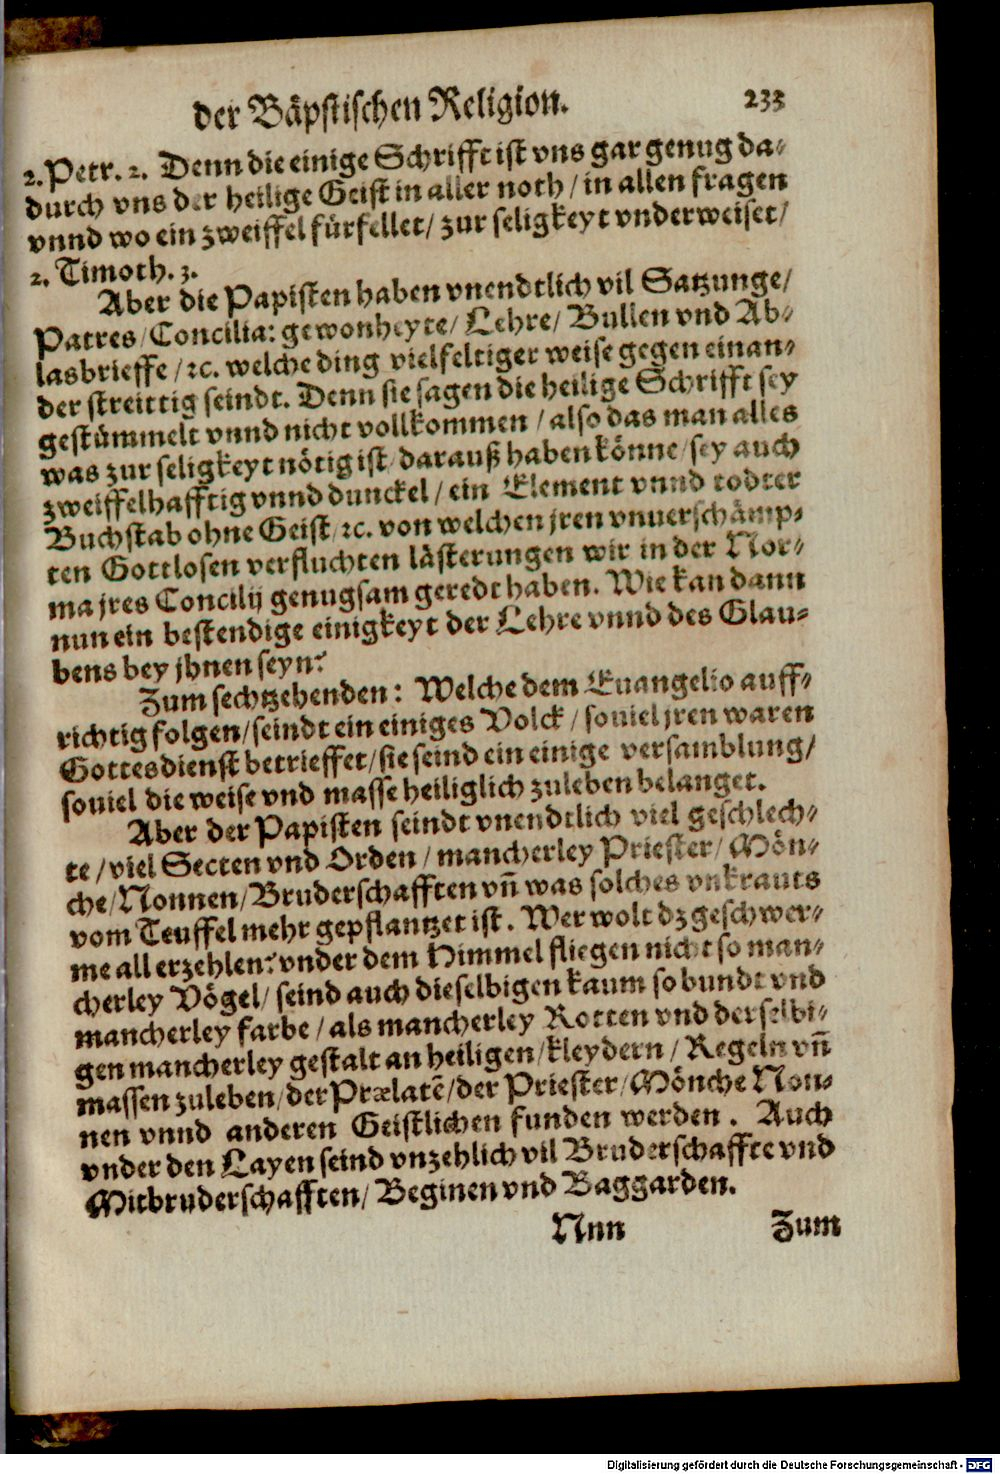 der Bäpstischen Religion. 233
2. Petr. 2. Denn die einige Schrifft ist vns gar genug da-
durch vns der heilige Geist in aller noth / in allen fragen
vnnd wo ein zweiffel fürfellet / zur seligkeyt vnderweiset /
2. Timoth. 3.
Aber die Papisten haben vnendtlich vil Satzunge /
Patres / Concilia: gewonheyte / Lehre / Bullen vnd Ab-
lasbrieffe / ꝛc. welche ding vielfeltiger weise gegen einan-
der streittig seindt. Denn sie sagen die heilige Schrifft sey
gestümmelt vnnd nicht vollkommen / also das man alles
was zur seligkeyt nötig ist / darauß haben könne / sey auch
zweiffelhafftig vnnd dunckel / ein Element vnnd todter
Buchstab ohne Geist / ꝛc. von welchen jren vnuerschämp-
ten Gottlosen verfluchten lästerungen wir in der Nor-
ma jres Concilij genugsam geredt haben. Wie kan dann
nun ein bestendige einigkeyt der Lehre vnnd des Glau-
bens bey jhnen seyn?
Zum sechtzehenden: Welche dem Euangelio auff-
richtig folgen / seindt ein einiges Volck / souiel jren waren
Gottesdienst betrieffet / sie seind ein einige versamblung /
souiel die weise vnd masse heiliglich zuleben belanget.
Aber der Papisten seindt vnendtlich viel geschlech-
te / viel Secten vnd Orden / mancherley Priester / Mön-
che / Nonnen / Bruderschafften vn̄ was solches vnkrauts
vom Teuffel mehr gepflantzet ist. Wer wolt dz geschwer-
me all erzehlen? vnder dem Himmel fliegen nicht so man-
cherley Vögel / seind auch dieselbigen kaum so bundt vnd
mancherley farbe / als mancherley Rotten vnd derselbi-
gen mancherley gestalt an heiligen / kleydern / Regeln vn̄
massen zuleben / der Prælatē / der Priester / Mönche Non-
nen vnnd anderen Geistlichen funden werden. Auch
vnder den Layen seind vnzehlich vil Bruderschaffte vnd
Mitbruderschafften / Beginen vnd Baggarden.
Nnn Zum
Digitalisierung gefördert durch die Deutsche Forschungsgemeinschaft - DFG